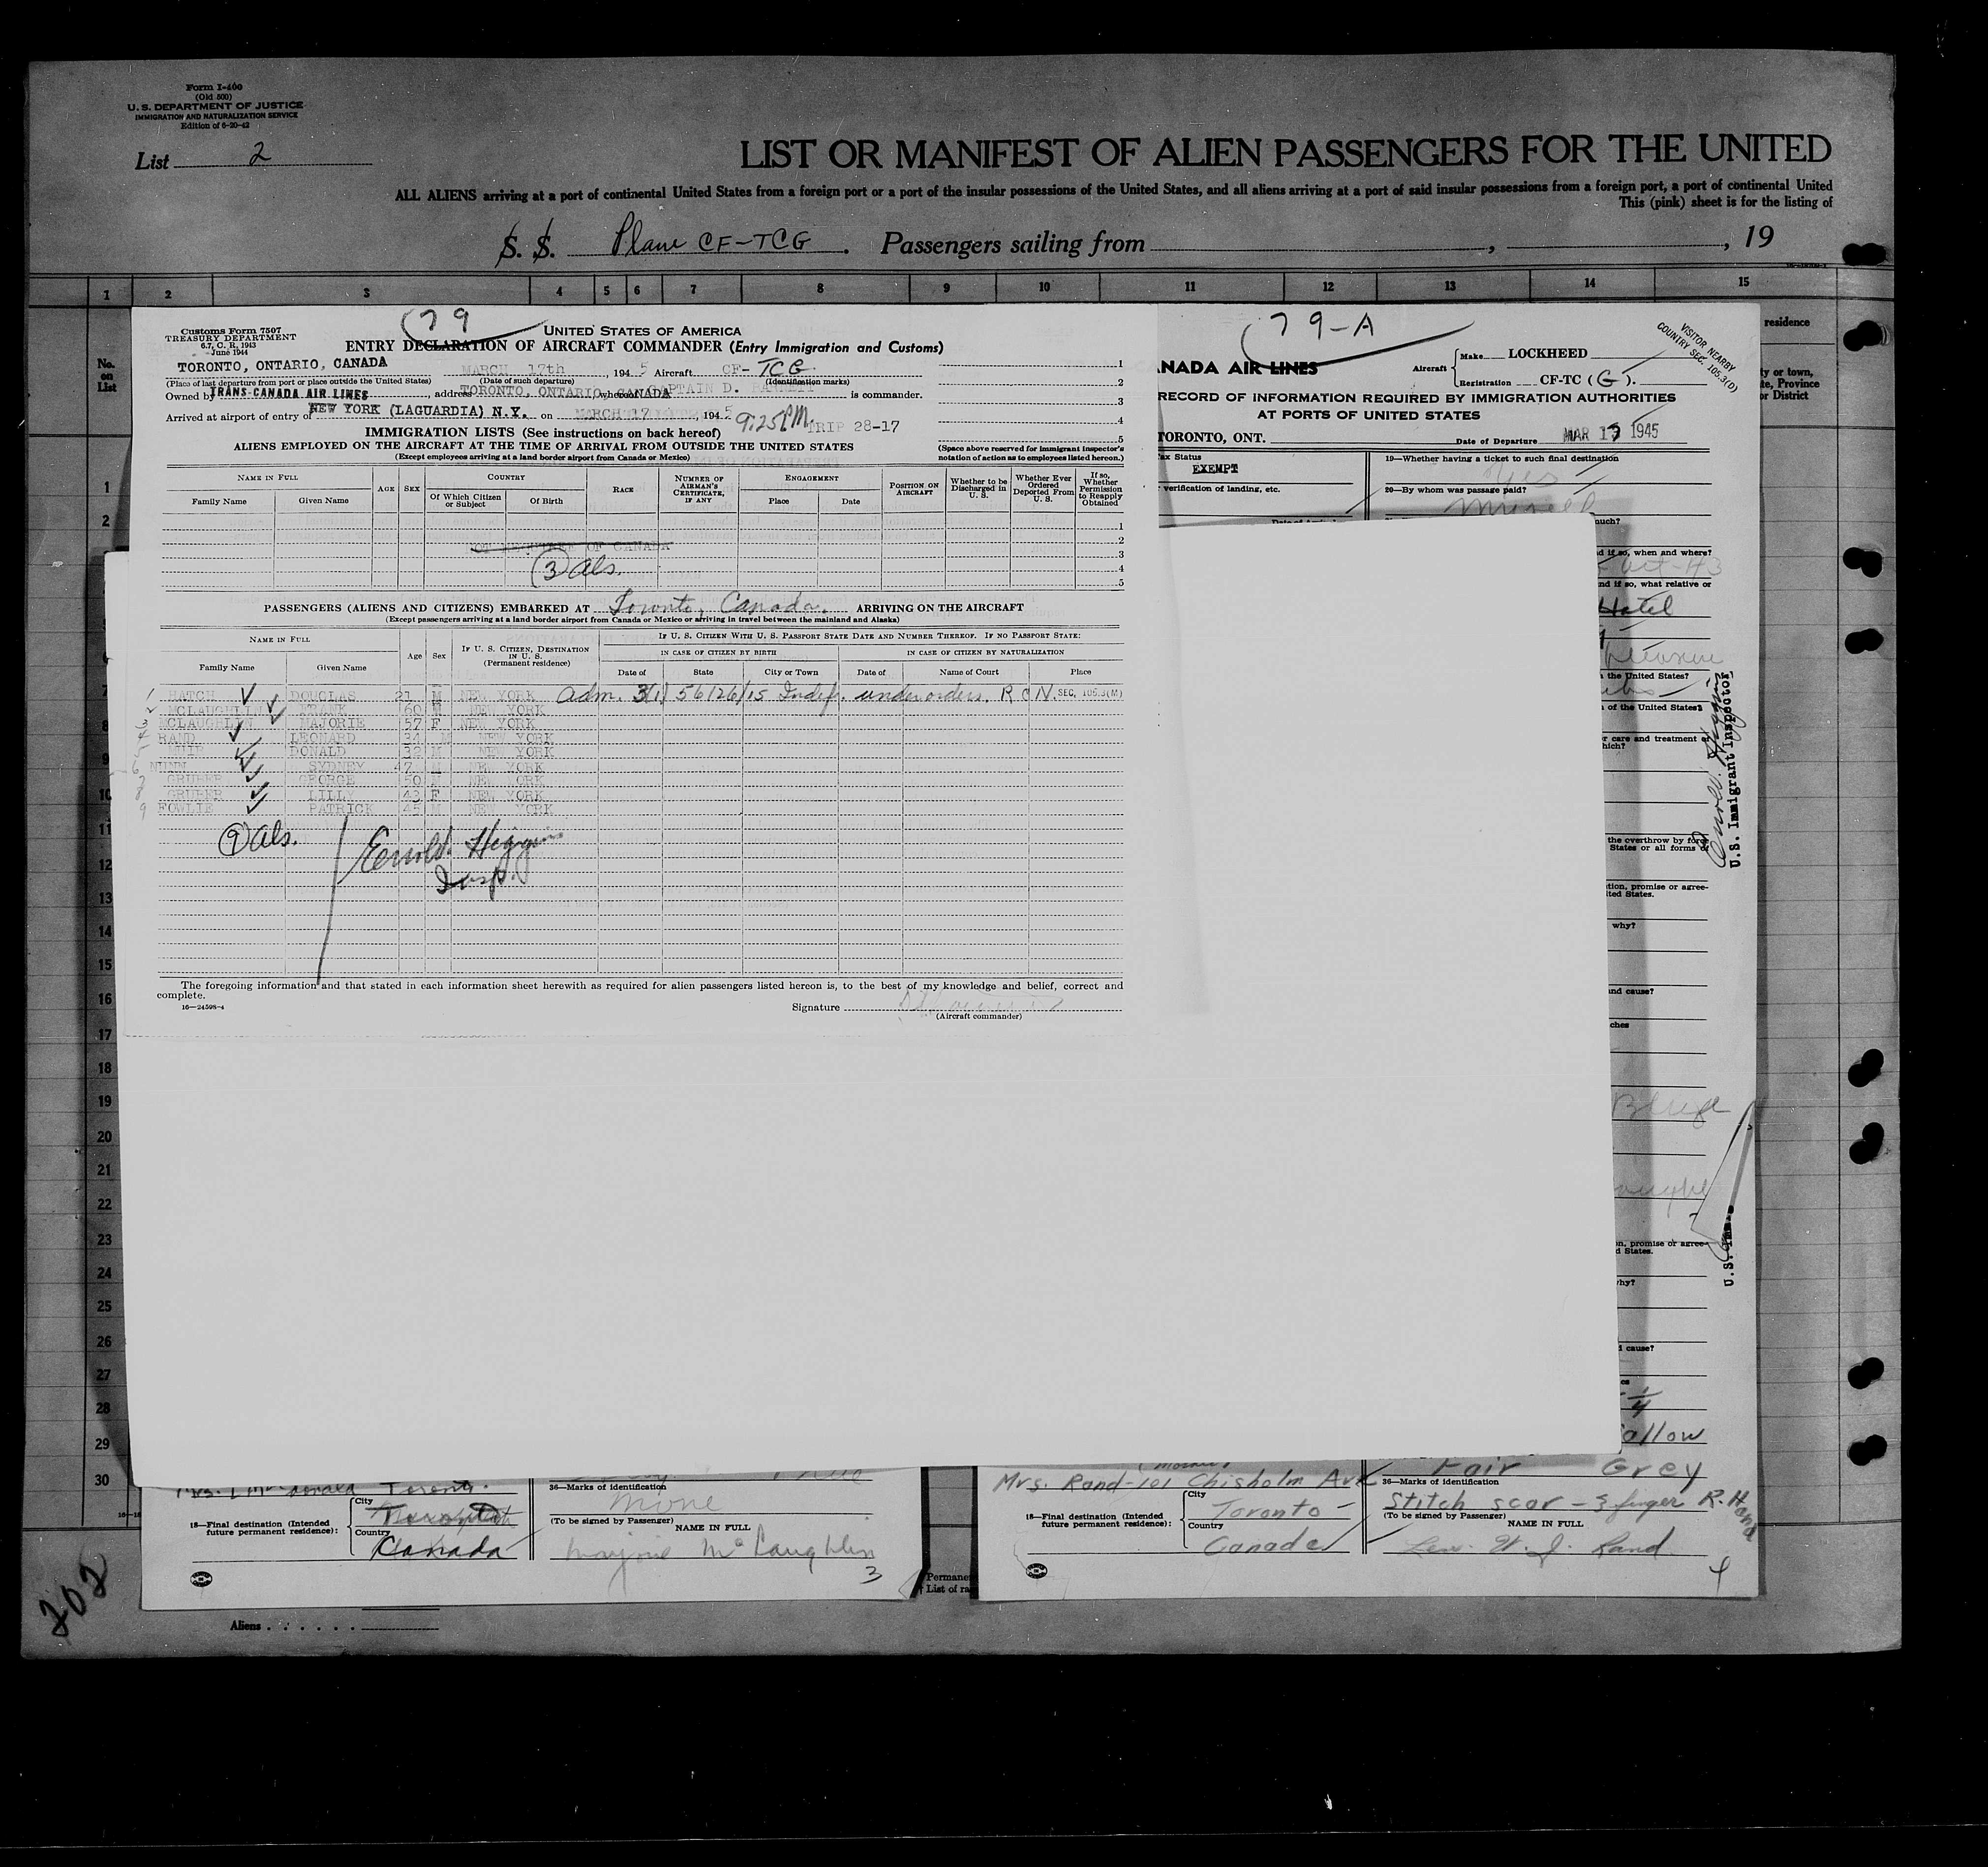 Form I-400
(Old 500)
U. S. DEPARTMENT OF JUSTICE
IMMIGRATION AND NATURALIZATION SERVICE
Edition of 6-20-42
List 2
LIST OR MANIFEST OF ALIEN PASSENGERS FOR THE UNITED
ALL ALIENS arriving at a port of continental United States from a foreign port or a port of the insular possessions of the United States, and all aliens arriving at a port of said insular possessions from a foreign port, a port of continental United
This (pink) sheet is for the listing of
S. S. Plane CF-TCG. Passengers sailing from , , 19
1 2 3 4 5 6 7 8 9 10 11 12 13 14 15
No. on List
residence
y or town,
te, Province
or District
79
Customs Form 7507
TREASURY DEPARTMENT
6.7, C. R. 1943
June 1944
UNITED STATES OF AMERICA
ENTRY DECLARATION OF AIRCRAFT COMMANDER (Entry Immigration and Customs)
TORONTO, ONTARIO, CANADA MARCH 17th, 1945 Aircraft CF-TCG
(Place of last departure from port or place outside the United States) (Date of such departure) (Identification marks)
Owned by TRANS-CANADA AIR LINES, address TORONTO, ONTARIO, CANADA CAPTAIN D. is commander.
Arrived at airport of entry of NEW YORK (LAGUARDIA) N.Y. on MARCH 17, 1945 9:25PM. TRIP 28-17
IMMIGRATION LISTS (See instructions on back hereof)
ALIENS EMPLOYED ON THE AIRCRAFT AT THE TIME OF ARRIVAL FROM OUTSIDE THE UNITED STATES
(Except employees arriving at a land border airport from Canada or Mexico)
(Space above reserved for immigrant inspector's notation of action as to employees listed hereon.)
NAME IN FULL
Family Name Given Name
AGE SEX
COUNTRY
Of Which Citizen or Subject Of Birth
RACE
NUMBER OF AIRMAN'S CERTIFICATE, IF ANY
ENGAGEMENT
Place Date
POSITION ON AIRCRAFT
Whether to be Discharged in U. S.
Whether Ever Ordered Deported From U. S.
If so, Whether Permission to Reapply Obtained
OF CANADA
3 als.
PASSENGERS (ALIENS AND CITIZENS) EMBARKED AT Toronto, Canada. ARRIVING ON THE AIRCRAFT
(Except passengers arriving at a land border airport from Canada or Mexico or arriving in travel between the mainland and Alaska)
NAME IN FULL
Family Name Given Name Age Sex
IF U. S. CITIZEN, DESTINATION IN U. S. (Permanent residence)
IF U. S. CITIZEN WITH U. S. PASSPORT STATE DATE AND NUMBER THEREOF. IF NO PASSPORT STATE:
IN CASE OF CITIZEN BY BIRTH IN CASE OF CITIZEN BY NATURALIZATION
Date of State City or Town Date of Name of Court Place
1 HATCH DOUGLAS 21 M NEW YORK Adm. 3(1) 56126/15 Indef. under orders. R C N. SEC. 105.3(M)
MCLAUGHLIN FRANK 60 M NEW YORK
MCLAUGHLIN MAJORIE 57 F NEW YORK
RAND LEONARD 34 M NEW YORK
MUIR DONALD 32 M NEW YORK
NUNN SYDNEY 47 M NEW YORK
GRUBER GEORGE 50 M NEW YORK
8 GRUBER LILLY 43 F NEW YORK
9 FOWLIE PATRICK 45 M NEW YORK
9 als.
Enold. Higgins
Insp.
The foregoing information and that stated in each information sheet herewith as required for alien passengers listed hereon is, to the best of my knowledge and belief, correct and
complete.
16—24598-4
Signature
(Aircraft commander)
79-A
ANADA AIR LINES
Aircraft Make LOCKHEED
Registration CF-TC (G).
VISITOR NEARBY
COUNTRY SEC. 105.3(D)
RECORD OF INFORMATION REQUIRED BY IMMIGRATION AUTHORITIES
AT PORTS OF UNITED STATES
TORONTO, ONT. Date of Departure MAR 17 1945
ax Status
EXEMPT
verification of landing, etc.
19—Whether having a ticket to such final destination
Yes
20—By whom was passage paid?
much?
nd if so, when and where?
Oct-43
nd if so, what relative or
Hotel
Pleasure
the United States?
of the United States?
or care and treatment
hich?
the overthrow by force
States or all forms of
tion, promise or agree-
ited States.
why?
and cause?
ches
U.S. Immigrant Inspector
n, promise or agree-
d States.
why?
d cause?
1/4
allow
1 2 3 4 5 6 7 8 9 10 11 12 13 14 15 16 17 18 19 20 21 22 23 24 25 26 27 28 29 30
Toronto.
18—Final destination (Intended future permanent residence):
City
Country
Canada
36—Marks of identification
None
(To be signed by Passenger)
NAME IN FULL
Marjorie McLaughlin
3
Mrs. Rand-101 Chisholm Ave
18—Final destination (Intended future permanent residence):
City Toronto
Country Canada
Fair Grey
36—Marks of identification
Stitch scar - 3 finger R. Hand
(To be signed by Passenger)
NAME IN FULL
Len. W. J. Rand.
4
Permane
List of ra
Aliens
202